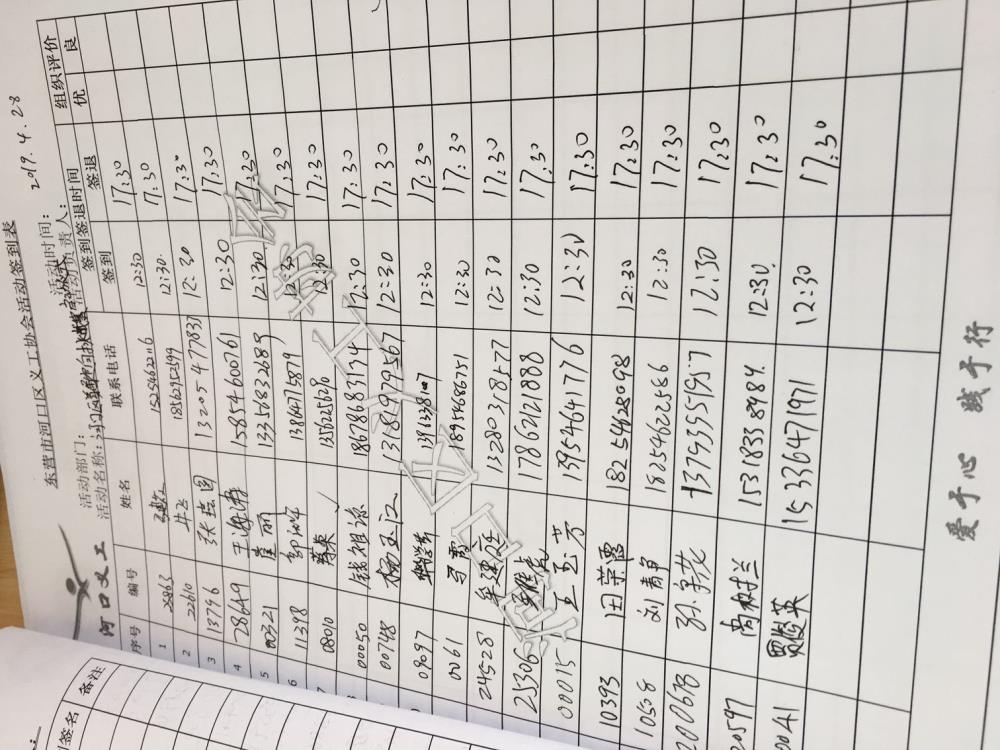 河口义工
东营市河口区义工协会活动签到表
活动部门：
活动时间： 2019.4.28
活动名称：
活动负责人：
序号 编号 姓名 联系电话 签到签退时间 组织评价
签到 签退 优 良
1 25863 15254622116 12:30 17:30
2 22610 牛飞 18562952599 12:30 17:30
3 13796 张慈国 13205477837 12:30 17:30
4 28649 王海涛 15854600761 12:30 17:30
5 00321 董丽 13356483289 12:30 17:30
6 11398 13864715879 12:30 17:30
08010 13562256290 12:30 17:30
00050 钱祖谅 18678683174 12:30 17:30
00748 杨玉江 13181979567 12:30 17:30
0907 12:30 17:30
0061 马霞 18954686751 12:30 17:30
24528 牟建庭 13280318577 12:30 17:30
25306 17862121888 12:30 17:30
00015 王玉芳 13954641776 12:30 17:30
10393 田荣霞 18254628098 12:30 17:30
10508 刘青 18254622586 12:30 17:30
200678 孙荣花 13793559957 12:30 17:30
20597 高树兰 15318338989 12:30 17:30
0041 贾俊英 15336471971 12:30 17:30
爱于心 践于行
签名 备注